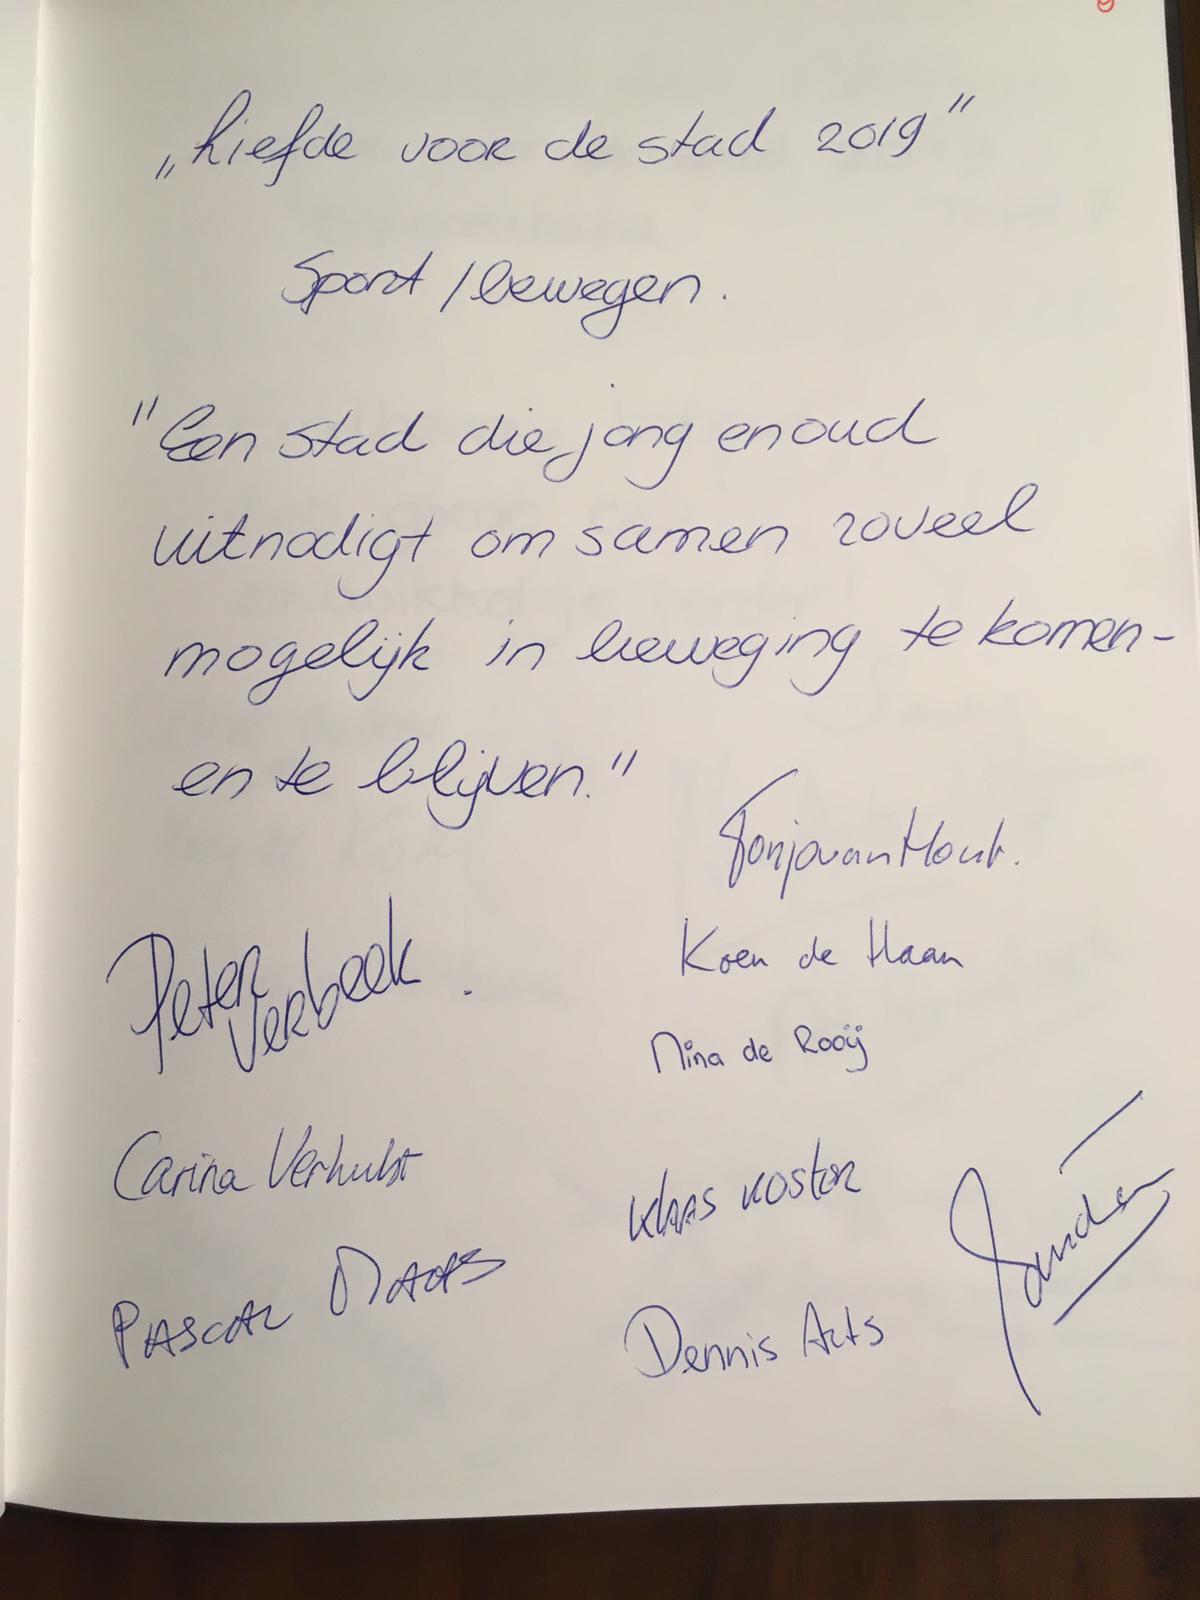 „Liefde voor de stad 2019"
Sport / bewegen.
"Een stad die jong en oud
uitnodigt om samen zoveel
mogelijk in beweging te komen-
en te blijven."
Tonja van Hout.
Peter
Verbeek.
Koen de Haan
Nina de Rooij
Carina Verhulst
Klaas Koster
Sander
Pascal Maas
Dennis Arts